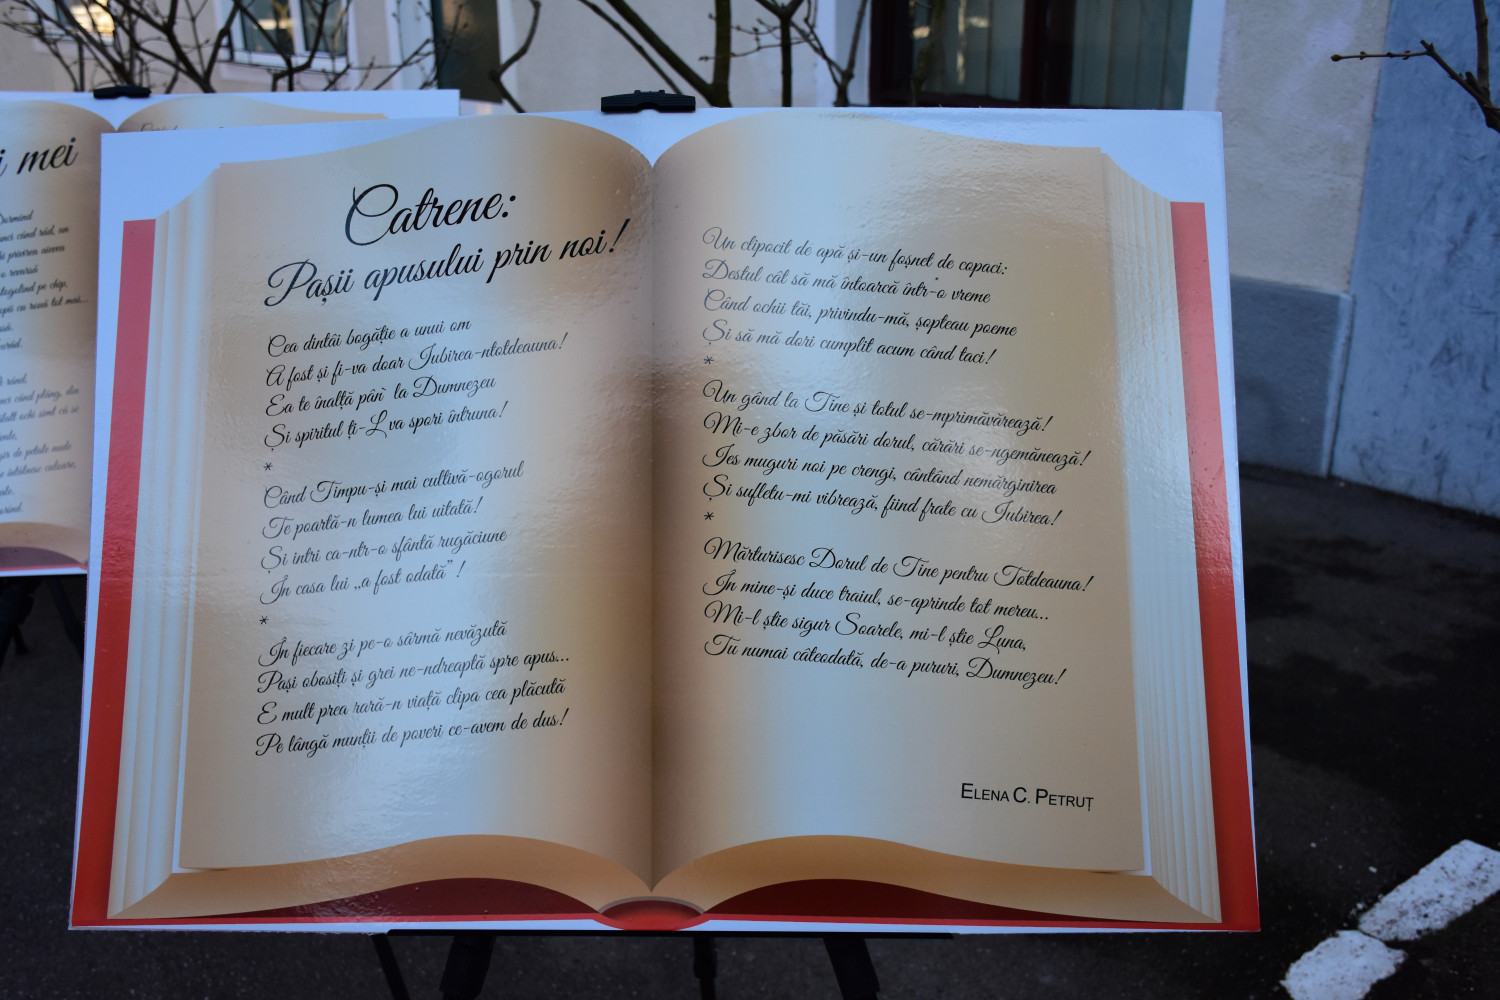 i mei
Durmind
când râd, un
privirea aineva
o revarsă
pe chip,
cu rouă tot mai...
când plâng, din
ochi simt că se
de petale nude
Catrene:
Pașii apusului prin noi!
Cea dintâi bogăție a unui om
A fost și fi-va doar Iubirea-ntotdeauna!
Ea te înalță pân` la Dumnezeu
Și spiritul ți-L va spori întruna!
*
Când Timpu-și mai cultivă-ogorul
Te poartă-n lumea lui uitată!
Și intri ca-ntr-o sfântă rugăciune
În casa lui „a fost odată” !
*
În fiecare zi pe-o sârmă nevăzută
Pași obosiți și grei ne-ndreaptă spre apus...
E mult prea rară-n viață clipa cea plăcută
Pe lângă munții de poveri ce-avem de dus!
Un clipocit de apă și-un foșnet de copaci:
Destul cât să mă întoarcă într-o vreme
Când ochii tăi, privindu-mă, șopteau poeme
Și să mă dori cumplit acum când taci!
*
Un gând la Tine și totul se-mprimăvărează!
Mi-e zbor de păsări dorul, cărări se-ngemănează!
Ies muguri noi pe crengi, cântând nemărginirea
Și sufletu-mi vibrează, fiind frate cu Iubirea!
*
Mărturisesc Dorul de Tine pentru Totdeauna!
În mine-și duce traiul, se-aprinde tot mereu...
Mi-l știe sigur Soarele, mi-l știe Luna,
Tu numai câteodată, de-a pururi, Dumnezeu!
Elena C. Petruț